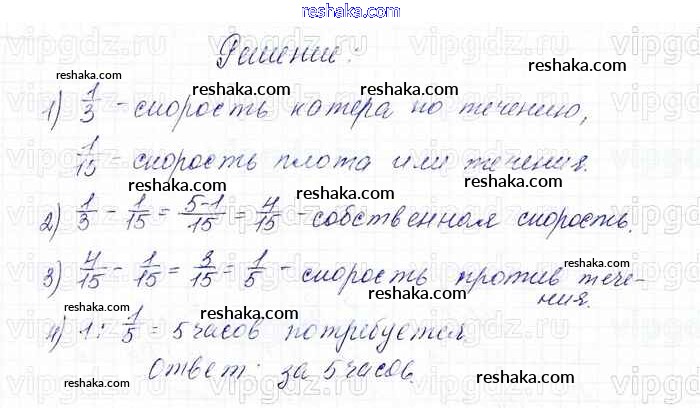 reshaka.com
vipgdz.ru vipgdz.ru vipgdz.ru
Решение:
reshaka.com reshaka.com reshaka.com
1) 1/3 - скорость катера по течению,
reshaka.com reshaka.com reshaka.com
1/15 - скорость плота или течения.
reshaka.com reshaka.com reshaka.com
2) 1/3 - 1/15 = 5-1/15 = 4/15 - собственная скорость.
reshaka.com reshaka.com reshaka.com
3) 4/15 - 1/15 = 3/15 = 1/5 - скорость против тече-
ния.
reshaka.com reshaka.com reshaka.com
4) 1 : 1/5 = 5 часов потребуется.
Ответ: за 5 часов.
reshaka.com reshaka.com reshaka.com